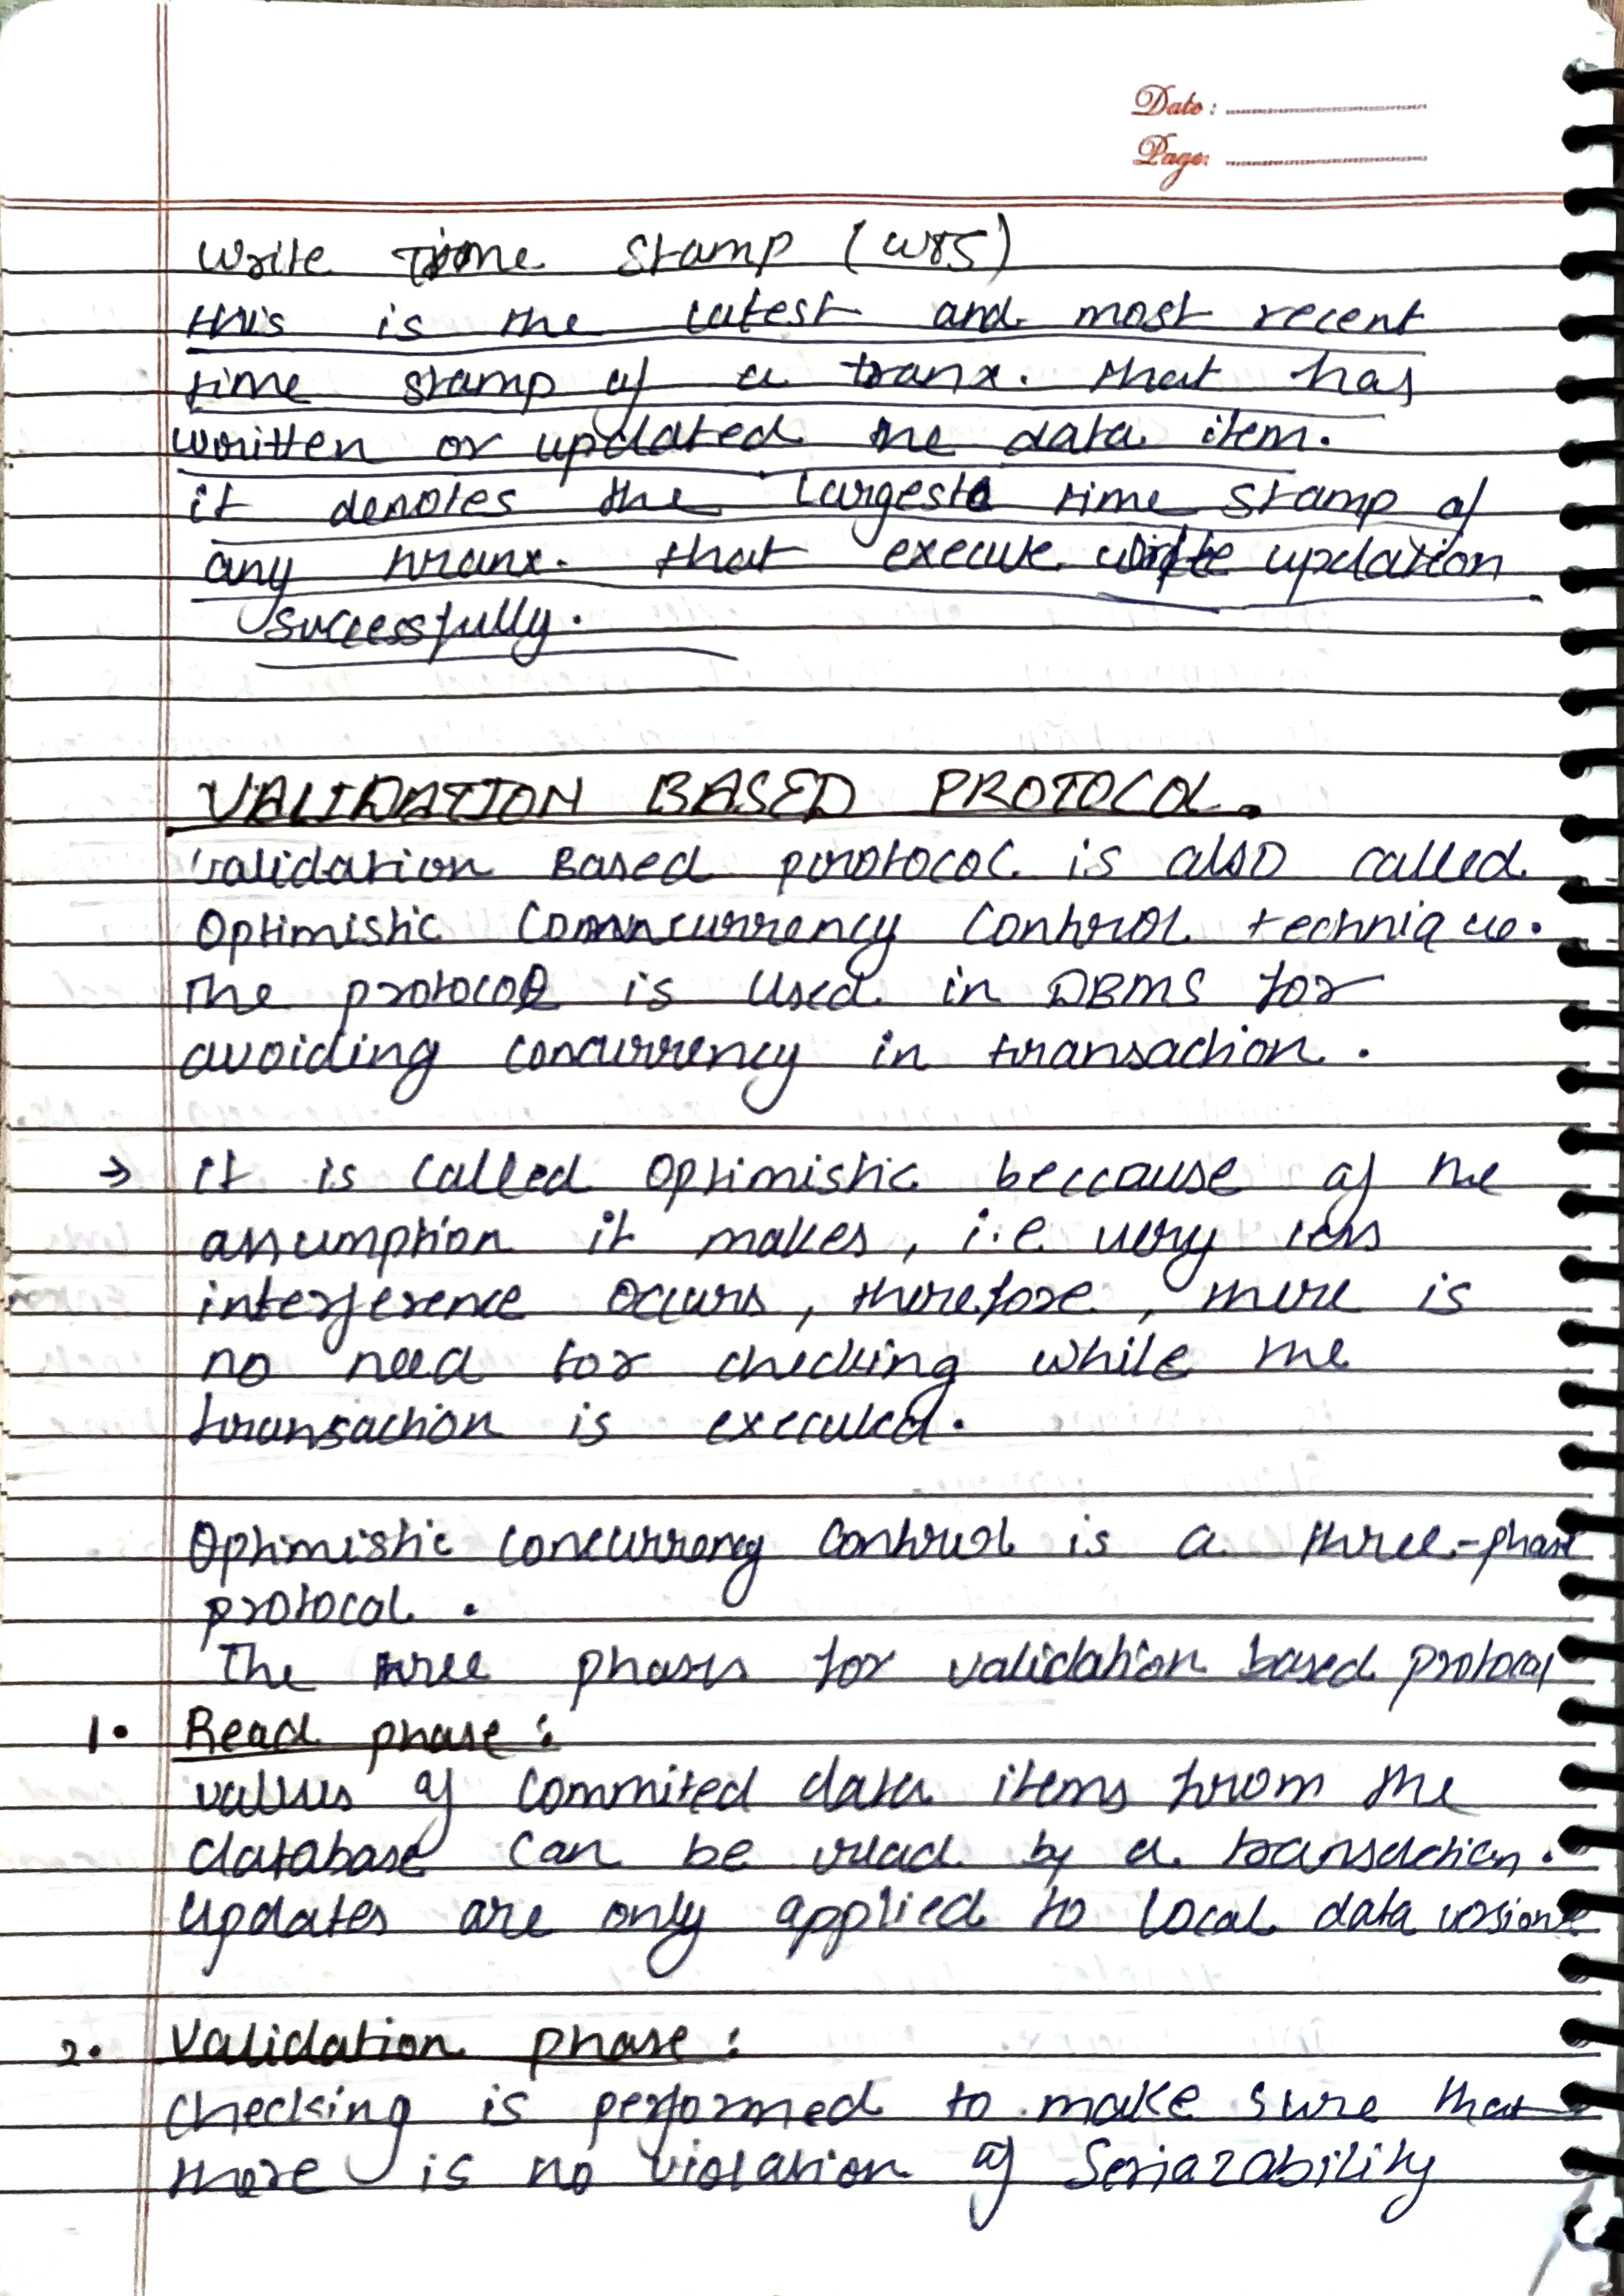 Date :
Page:
Write Time Stamp (WTS)
this is the latest and most recent
time stamp of a tranx. that has
written or updated the data item.
it denotes the largest time stamp of
any tranx. that execute write updation
successfully.
VALIDATION BASED PROTOCOL.
Validation Based protocol is also called
Optimistic Concurrency Control technique.
The protocol is used in DBMS for
avoiding concurrency in transaction.
→ it is called optimistic beccause of the
assumption it makes, i.e very less
interference occurs, therefore, there is
no need for checking while the
transaction is executed.
Optimistic concurrency control is a three-phase
protocol.
The three phases for validation based protocol
1. Read phase:
values of commited data items from the
database can be read by a transaction.
Updates are only applied to local data versions
2. Validation phase:
Checking is performed to make sure that
there is no violation of Seriazability